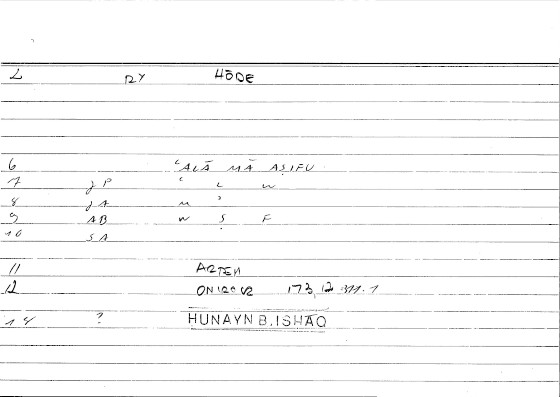 2 RY HŌDE
6 ʿALĀ MĀ AṢIFU
7 gP ʿ L W
8 gA M ʾ
9 AB W Ṣ F
10 SA
11 ARTEM
12 ONIROCR 173, 12 311.1
14 ? HUNAYN B. ISHĀQ